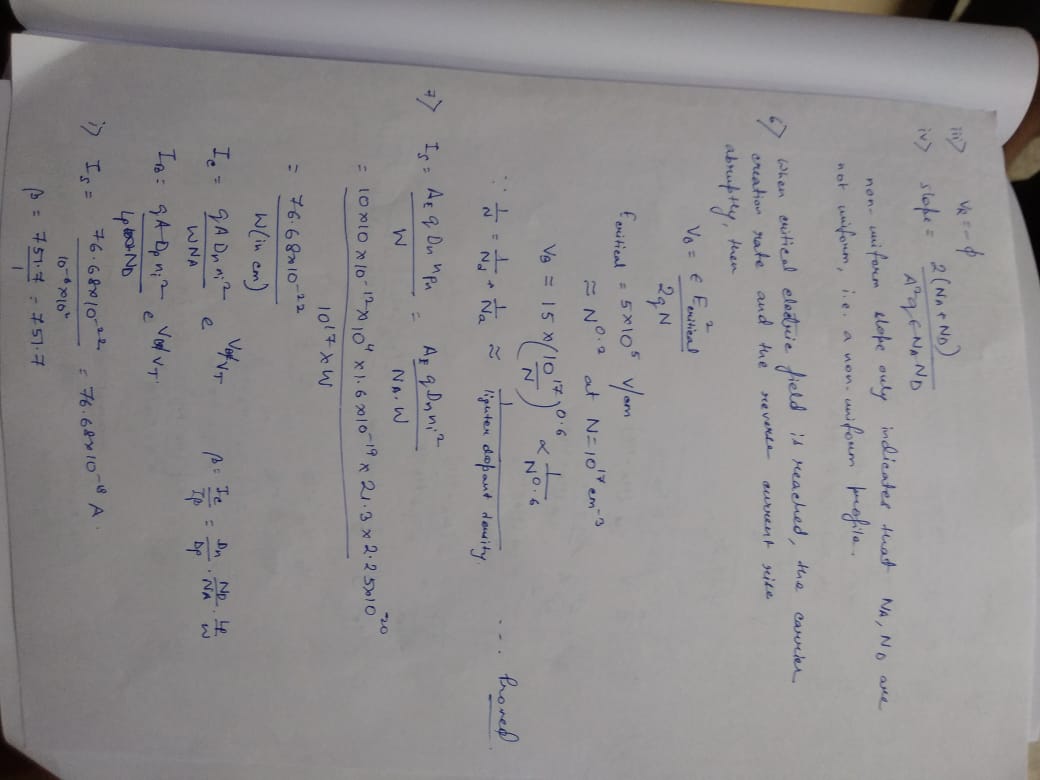 iii) V_R = -φ
iv) slope = 2(N_A + N_D) / A²qϵN_A N_D
non-uniform slope only indicates that N_A, N_D are
not uniform, i.e. a non-uniform profile.
6) When critical electric field is reached, the carrier
creation rate and the reverse current rise
abruptly, then
V_B = ϵ E_critical² / 2qN
E_critical = 5×10⁵ V/cm
≈ N^0.2 at N = 10¹⁷ cm⁻³
V_B = 15 × (10¹⁷ / N)^0.6 ∝ 1 / N^0.6
∵ 1/N = 1/N_d + 1/N_a ≈ 1 / lighter dopant density. ... Proved
7) I_S = A_E q D_n n_po / W = A_E q D_n n_i² / N_A . W
= 10×10×10⁻¹²×10⁴×1.6×10⁻¹⁹×21.3×2.25×10²⁰ / 10¹⁷×W
= 76.68×10⁻²² / W(in cm)
I_C = qAD_n n_i² / W N_A e^V/V_T β = I_C / I_B = D_n / D_p . N_D / N_A . L_p / W
I_B = qAD_p n_i² / L_p N_D e^V/V_T
i) I_S = 76.68×10⁻²² / 10⁻⁶×10² = 76.68×10⁻¹⁸ A.
β = 751.7 / 1 = 751.7